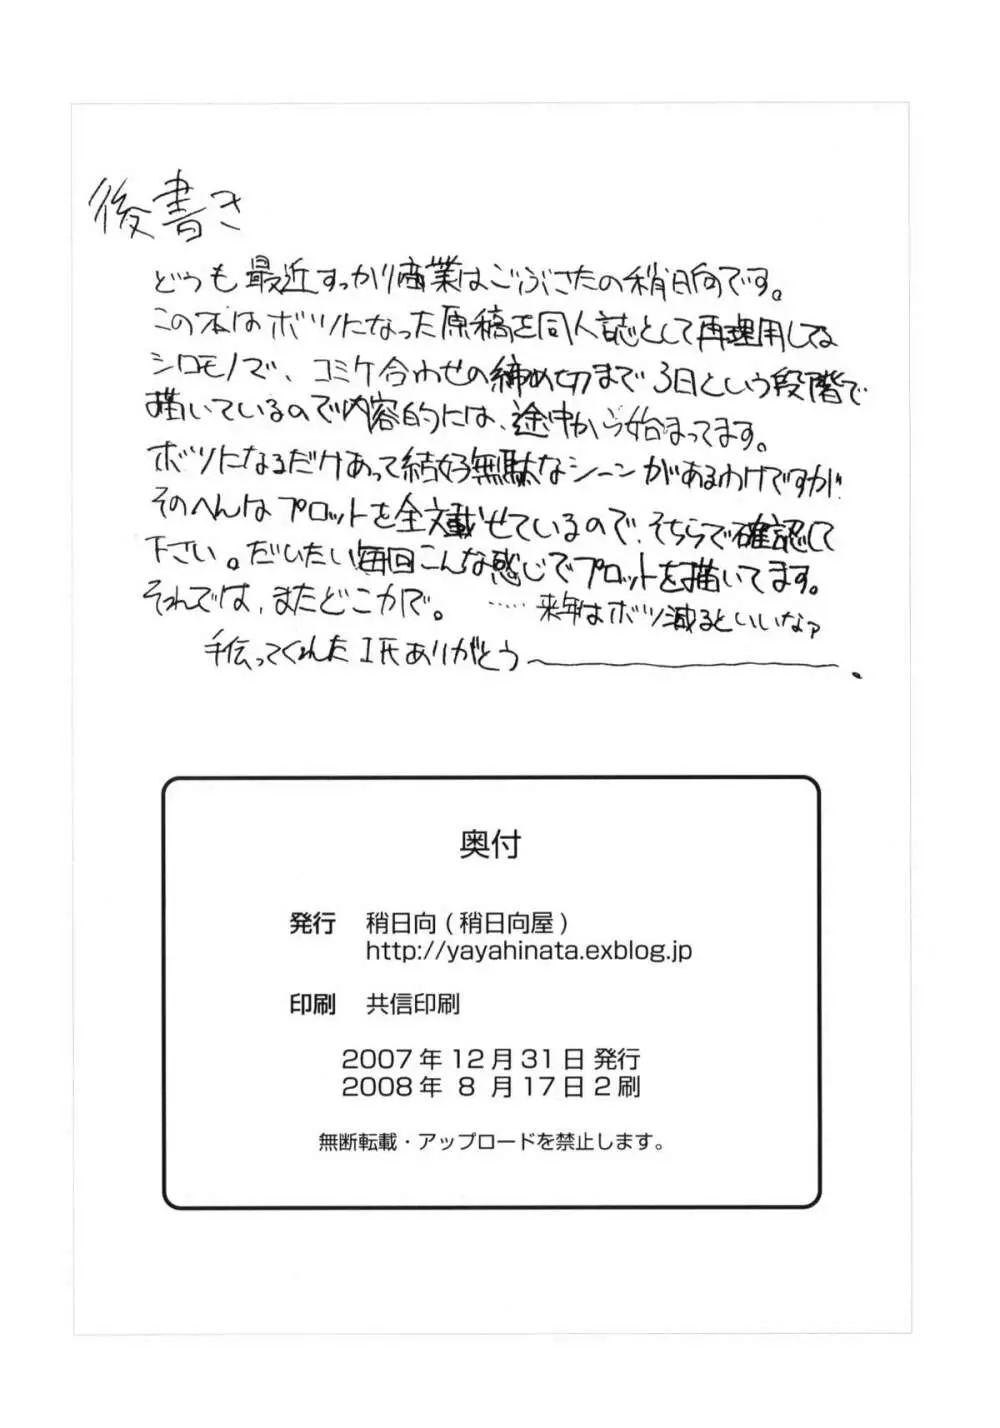 後書き
どうも最近すっかり商業はごぶさたの稍日向です。
この本はボツになった原稿を同人誌として再理用してる
シロモノで、コミケ合わせの締め切まで3日という段階で
描いているので内容的には、途中から始まってます。
ボツになるだけあって結好無駄なシーンがあるわけですが
そのへんはプロットを全文載せているので、そちらで確認して
下さい。だいたい毎回こんな感じでプロットを描いてます。
それでは、またどこかで。 ‥‥‥来年はボツ減るといいなァ
手伝ってくれたI氏ありがとう〜――――――。
奥付
発行 稍日向(稍日向屋)
http://yayahinata.exblog.jp
印刷 共信印刷
2007年12月31日 発行
2008年 8 月17日2刷
無断転載・アップロードを禁止します。